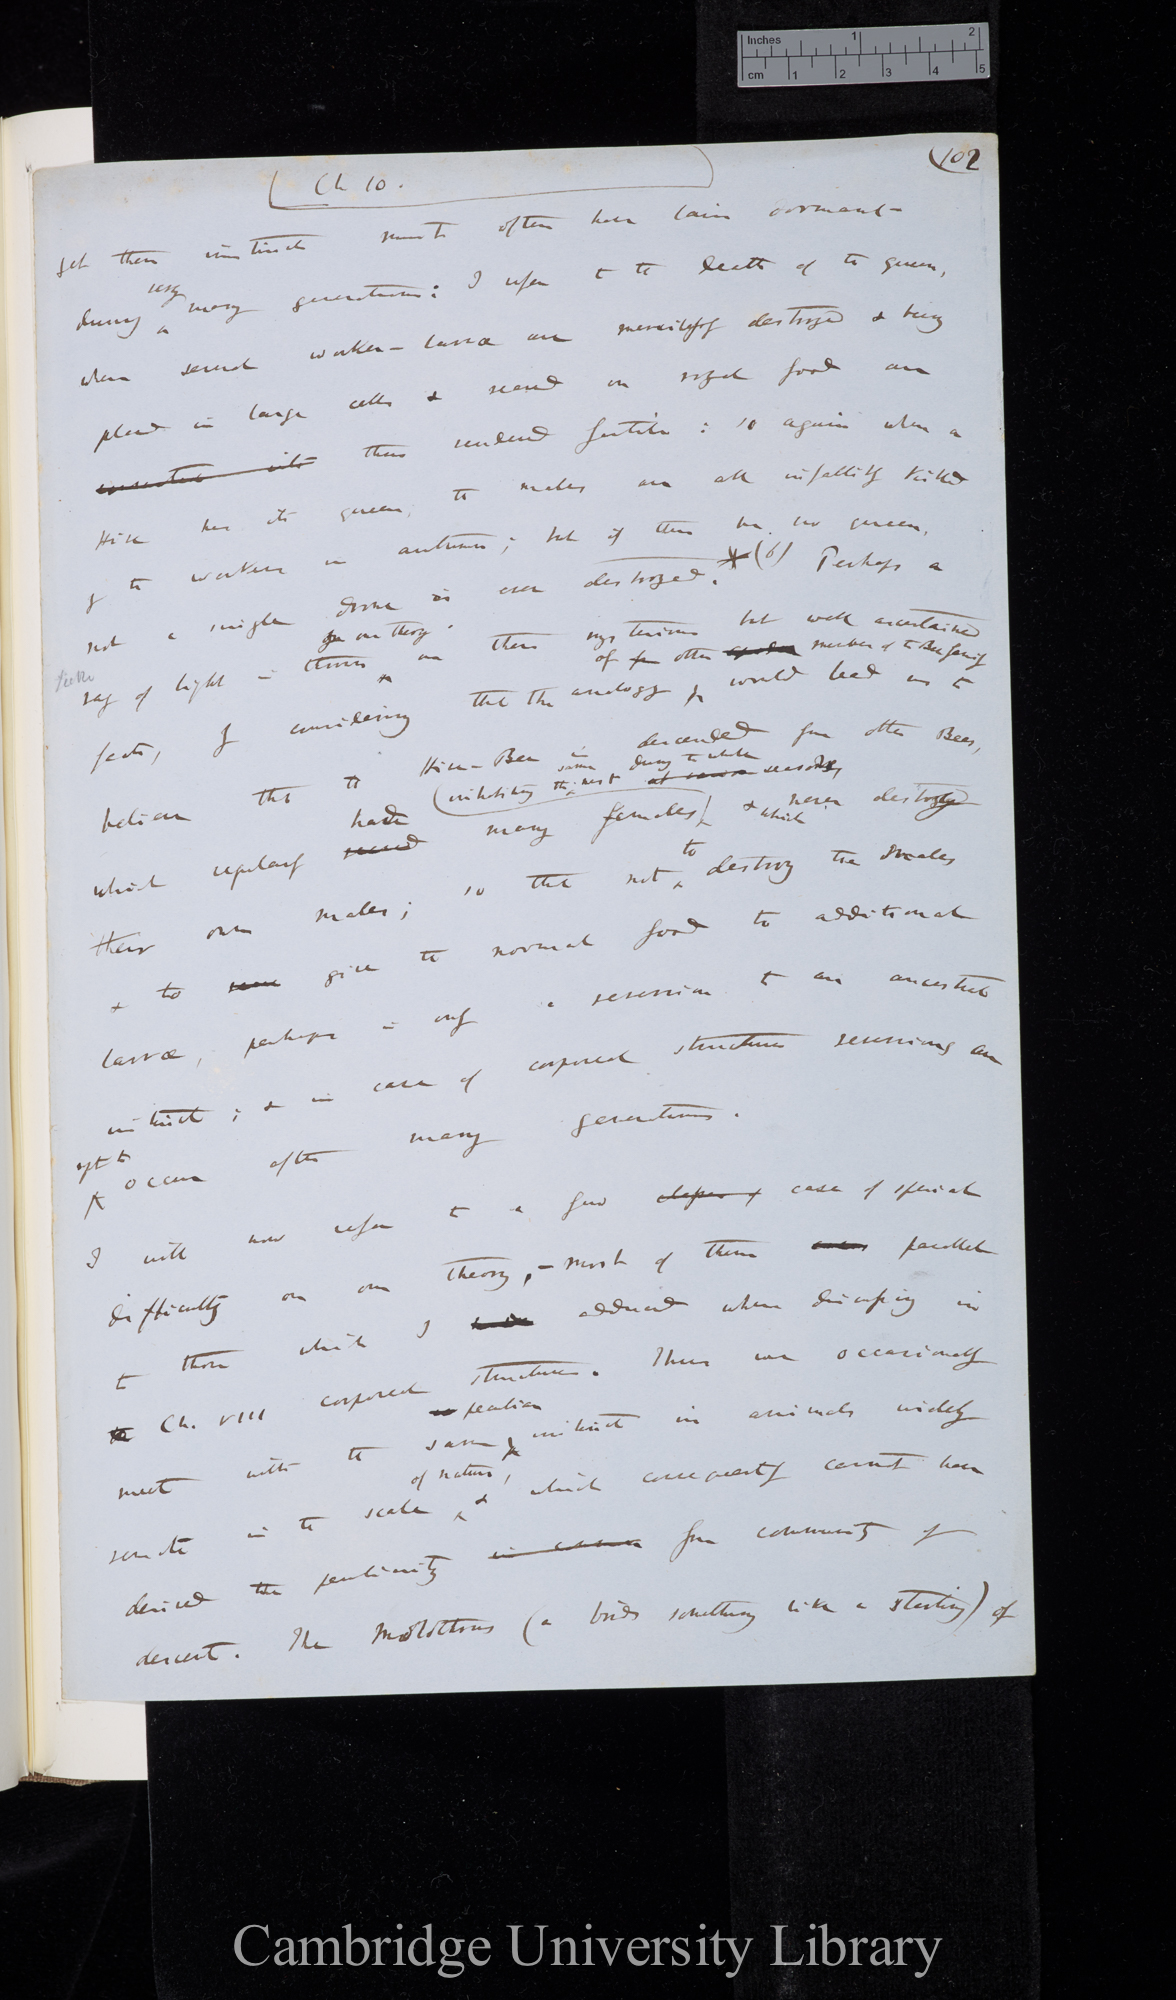 Inches 1 2
cm 1 2 3 4 5
102
Ch 10.
yet these instincts must often have lain dormant
during very many generations: I refer to the death of the queen,
when several worker-larvæ are mercifully destroyed & being
placed in large cells & reared on royal food are
thus rendered fertile: so again when a
Hive has its queen, the males are all infallibly killed
by the workers in autumn; but if there be no queen,
not a single drone is ever destroyed. (6) Perhaps a
ray of light is thrown on our theory on these mysterious but well ascertained
facts, by considering that the analogy of other members of the Bee family would lead us to
believe that the Hive-Bee is descended from other Bees,
which regularly had many females inhabiting the same nest during the whole season & which never destroyed
their own males; so that not to destroy the males
& to give the normal food to additional
larvæ, perhaps is only a reversion to an ancestral
instinct; & in case of corporeal structures reversions are
apt to occur after many generations.
I will now refer to a few cases of special
difficulty on our theory, — most of them parallel
to those which I adduced when discussing in
Ch. VIII corporeal structures. Thus we occasionally
meet with the same peculiar instinct in animals widely
remote in the scale of nature, & which consequently cannot have
derived the peculiarity from community of
descent. The Molothrus (a bird something like a starling) of
Cambridge University Library